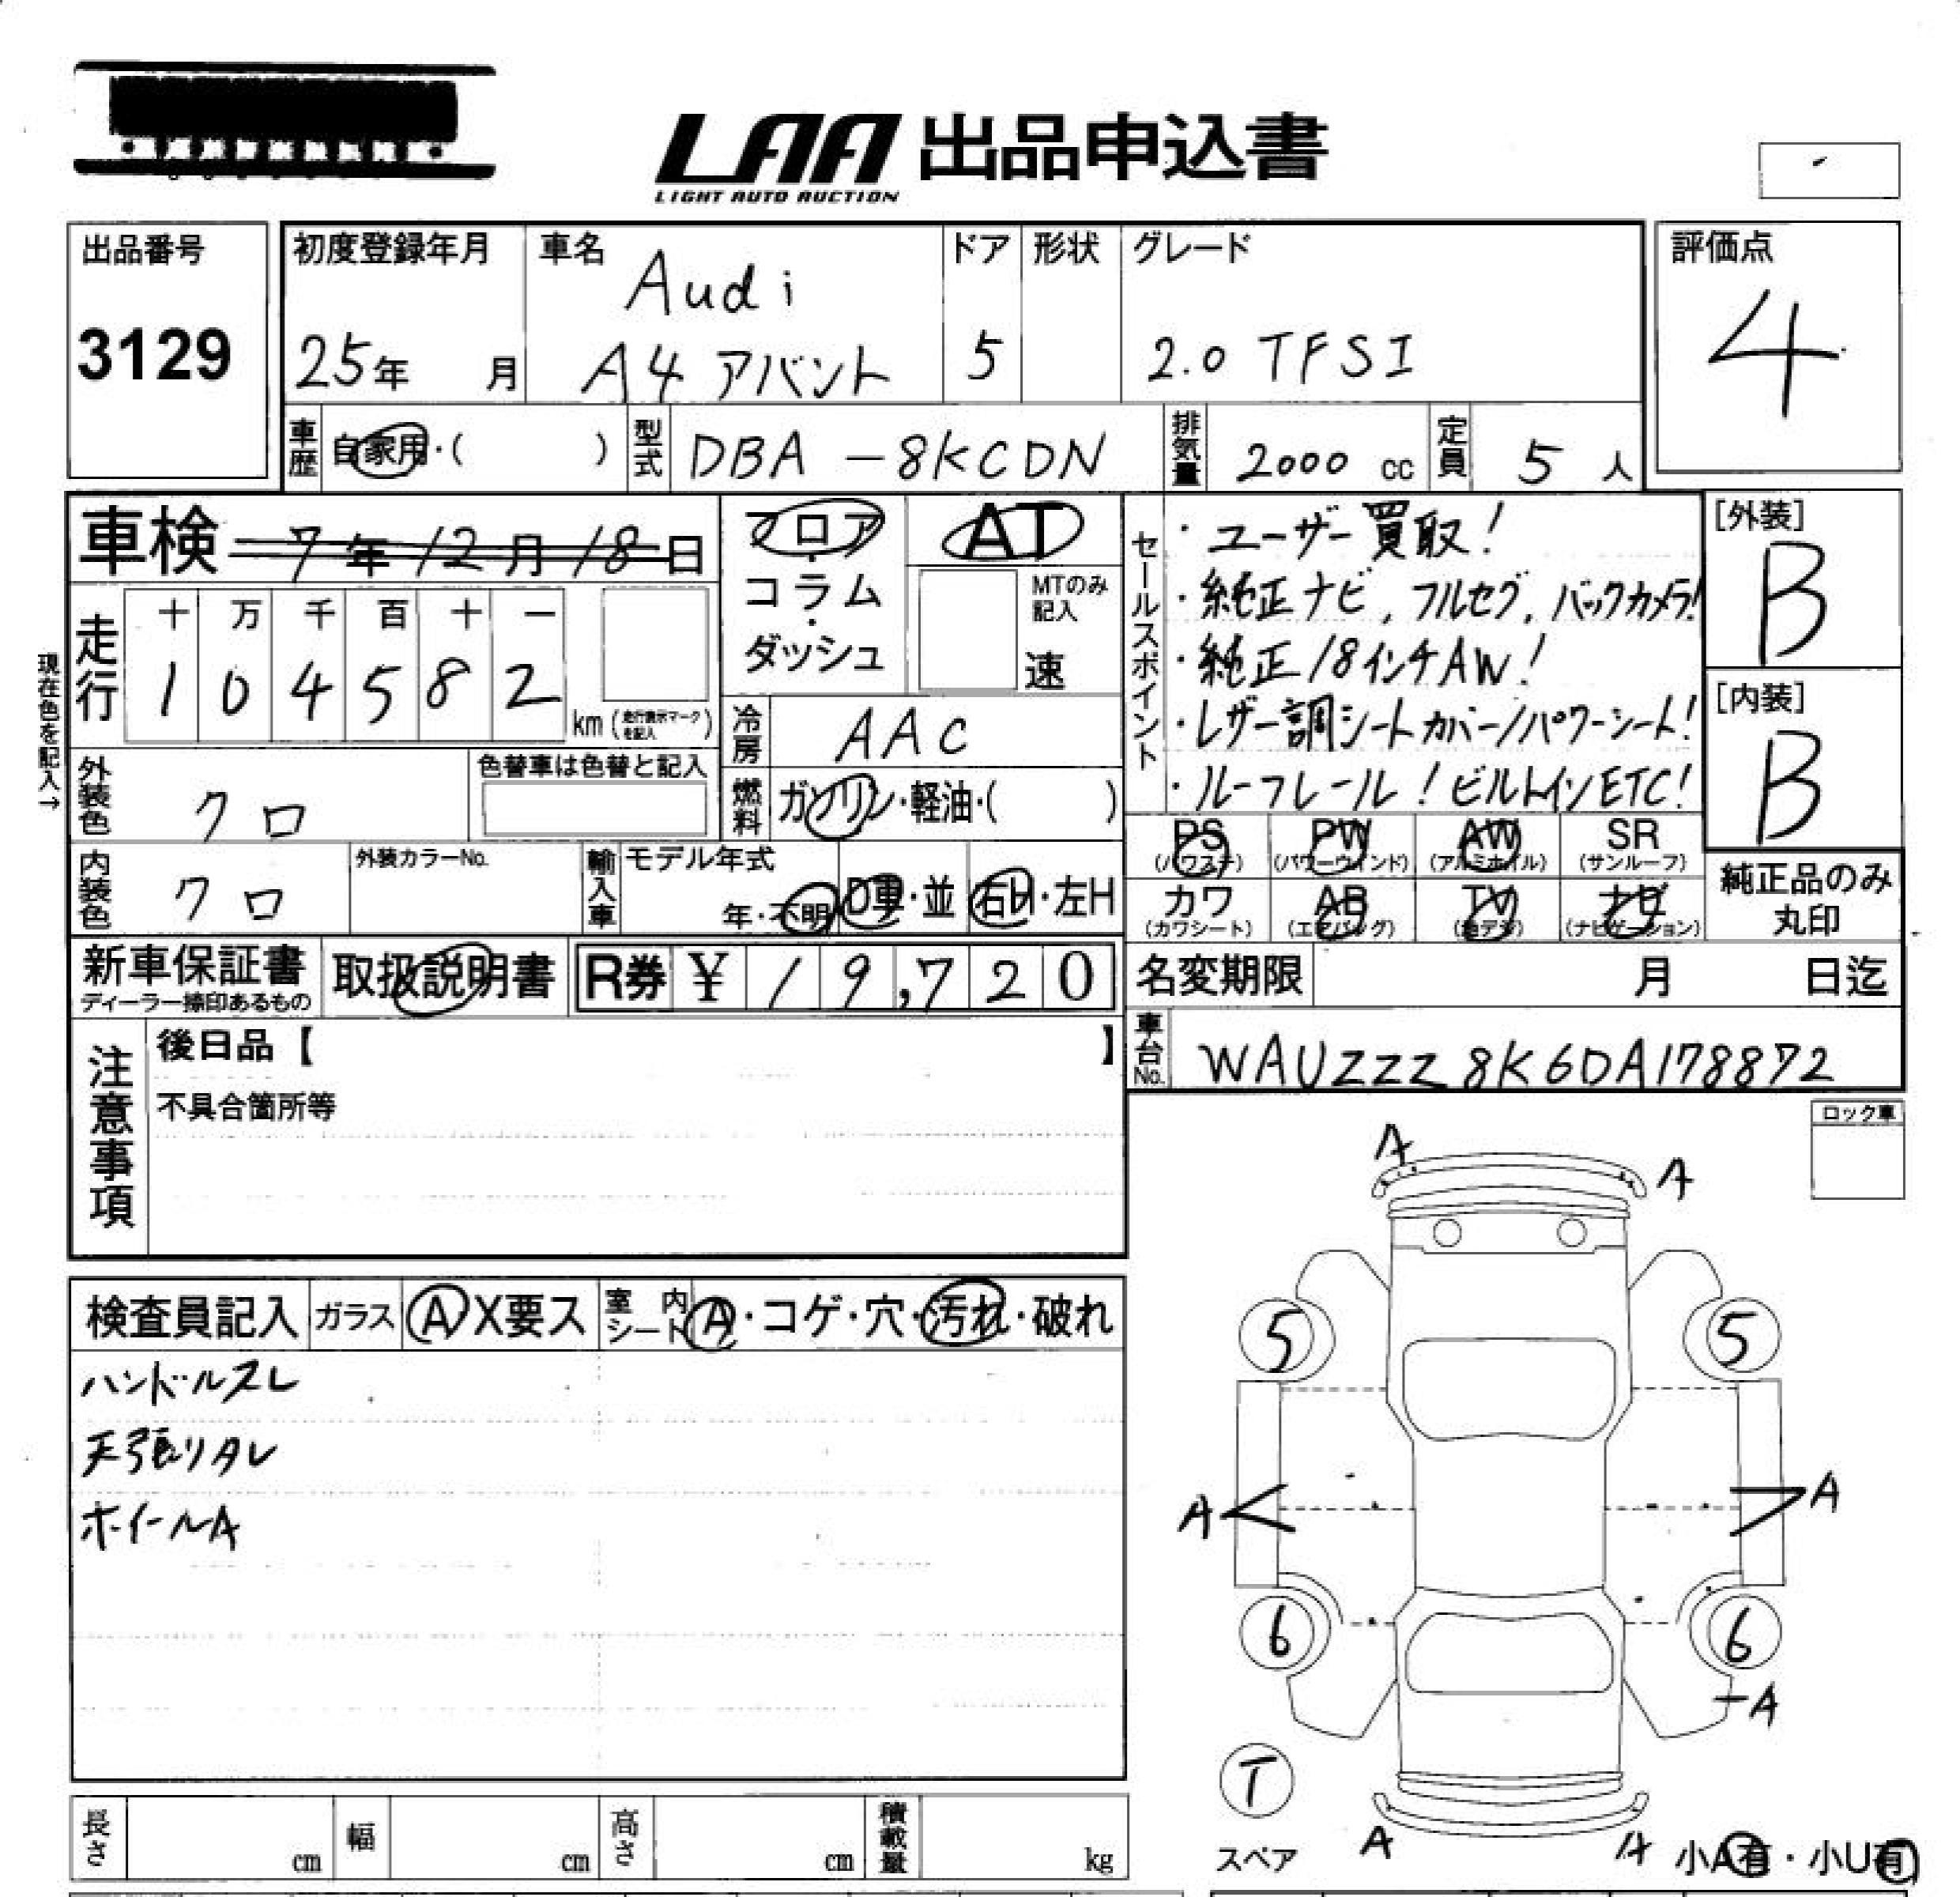 LAA 出品申込書
LIGHT AUTO AUCTION
出品番号
3129
初度登録年月
25年 月
車名
Audi
A4 アバント
ドア
5
形状
グレード
2.0 TFSI
評価点
4
車歴 自家用・( )
型式 DBA-8KCDN
排気量 2000 cc
定員 5 人
車検 7年12月18日
フロア・コラム・ダッシュ
AT
MTのみ記入
速
セールスポイント
・ユーザー買取!
・純正ナビ, フルセグ, バックカメラ!
・純正18インチAW!
・レザー調シートカバー/パワーシート!
・ルーフレール!ビルトインETC!
[外装]
B
[内装]
B
現在色を記入→
走行
十 万 千 百 十 一
1 0 4 5 8 2
km (走行表示マークを記入)
冷房 AAC
燃料 ガソリン・軽油・( )
外装色 クロ
色替車は色替と記入
内装色 クロ
外装カラーNo.
輸入車 モデル年式
年・不明
D車・並
右H・左H
PS (パワステ)
PW (パワーウインド)
AW (アルミホイル)
SR (サンルーフ)
カワ (カワシート)
AB (エアバッグ)
TV
ナビ (ナビゲーション)
純正品のみ丸印
新車保証書
ディーラー捺印あるもの
取扱説明書
R券 ¥ 19,720
名変期限 月 日迄
車台No. WAUZZZ8K6DA178872
注意事項
後日品【 】
不具合箇所等
ロック車
検査員記入
ガラス A X要ス
室内シート A・コゲ・穴・汚れ・破れ
ハンドルスレ
天張りタレ
ホイールA
A
A
5
5
A
A
6
6
A
T
スペア
A
A
小A有・小U有
長さ cm
幅 cm
高さ cm
積載量 kg